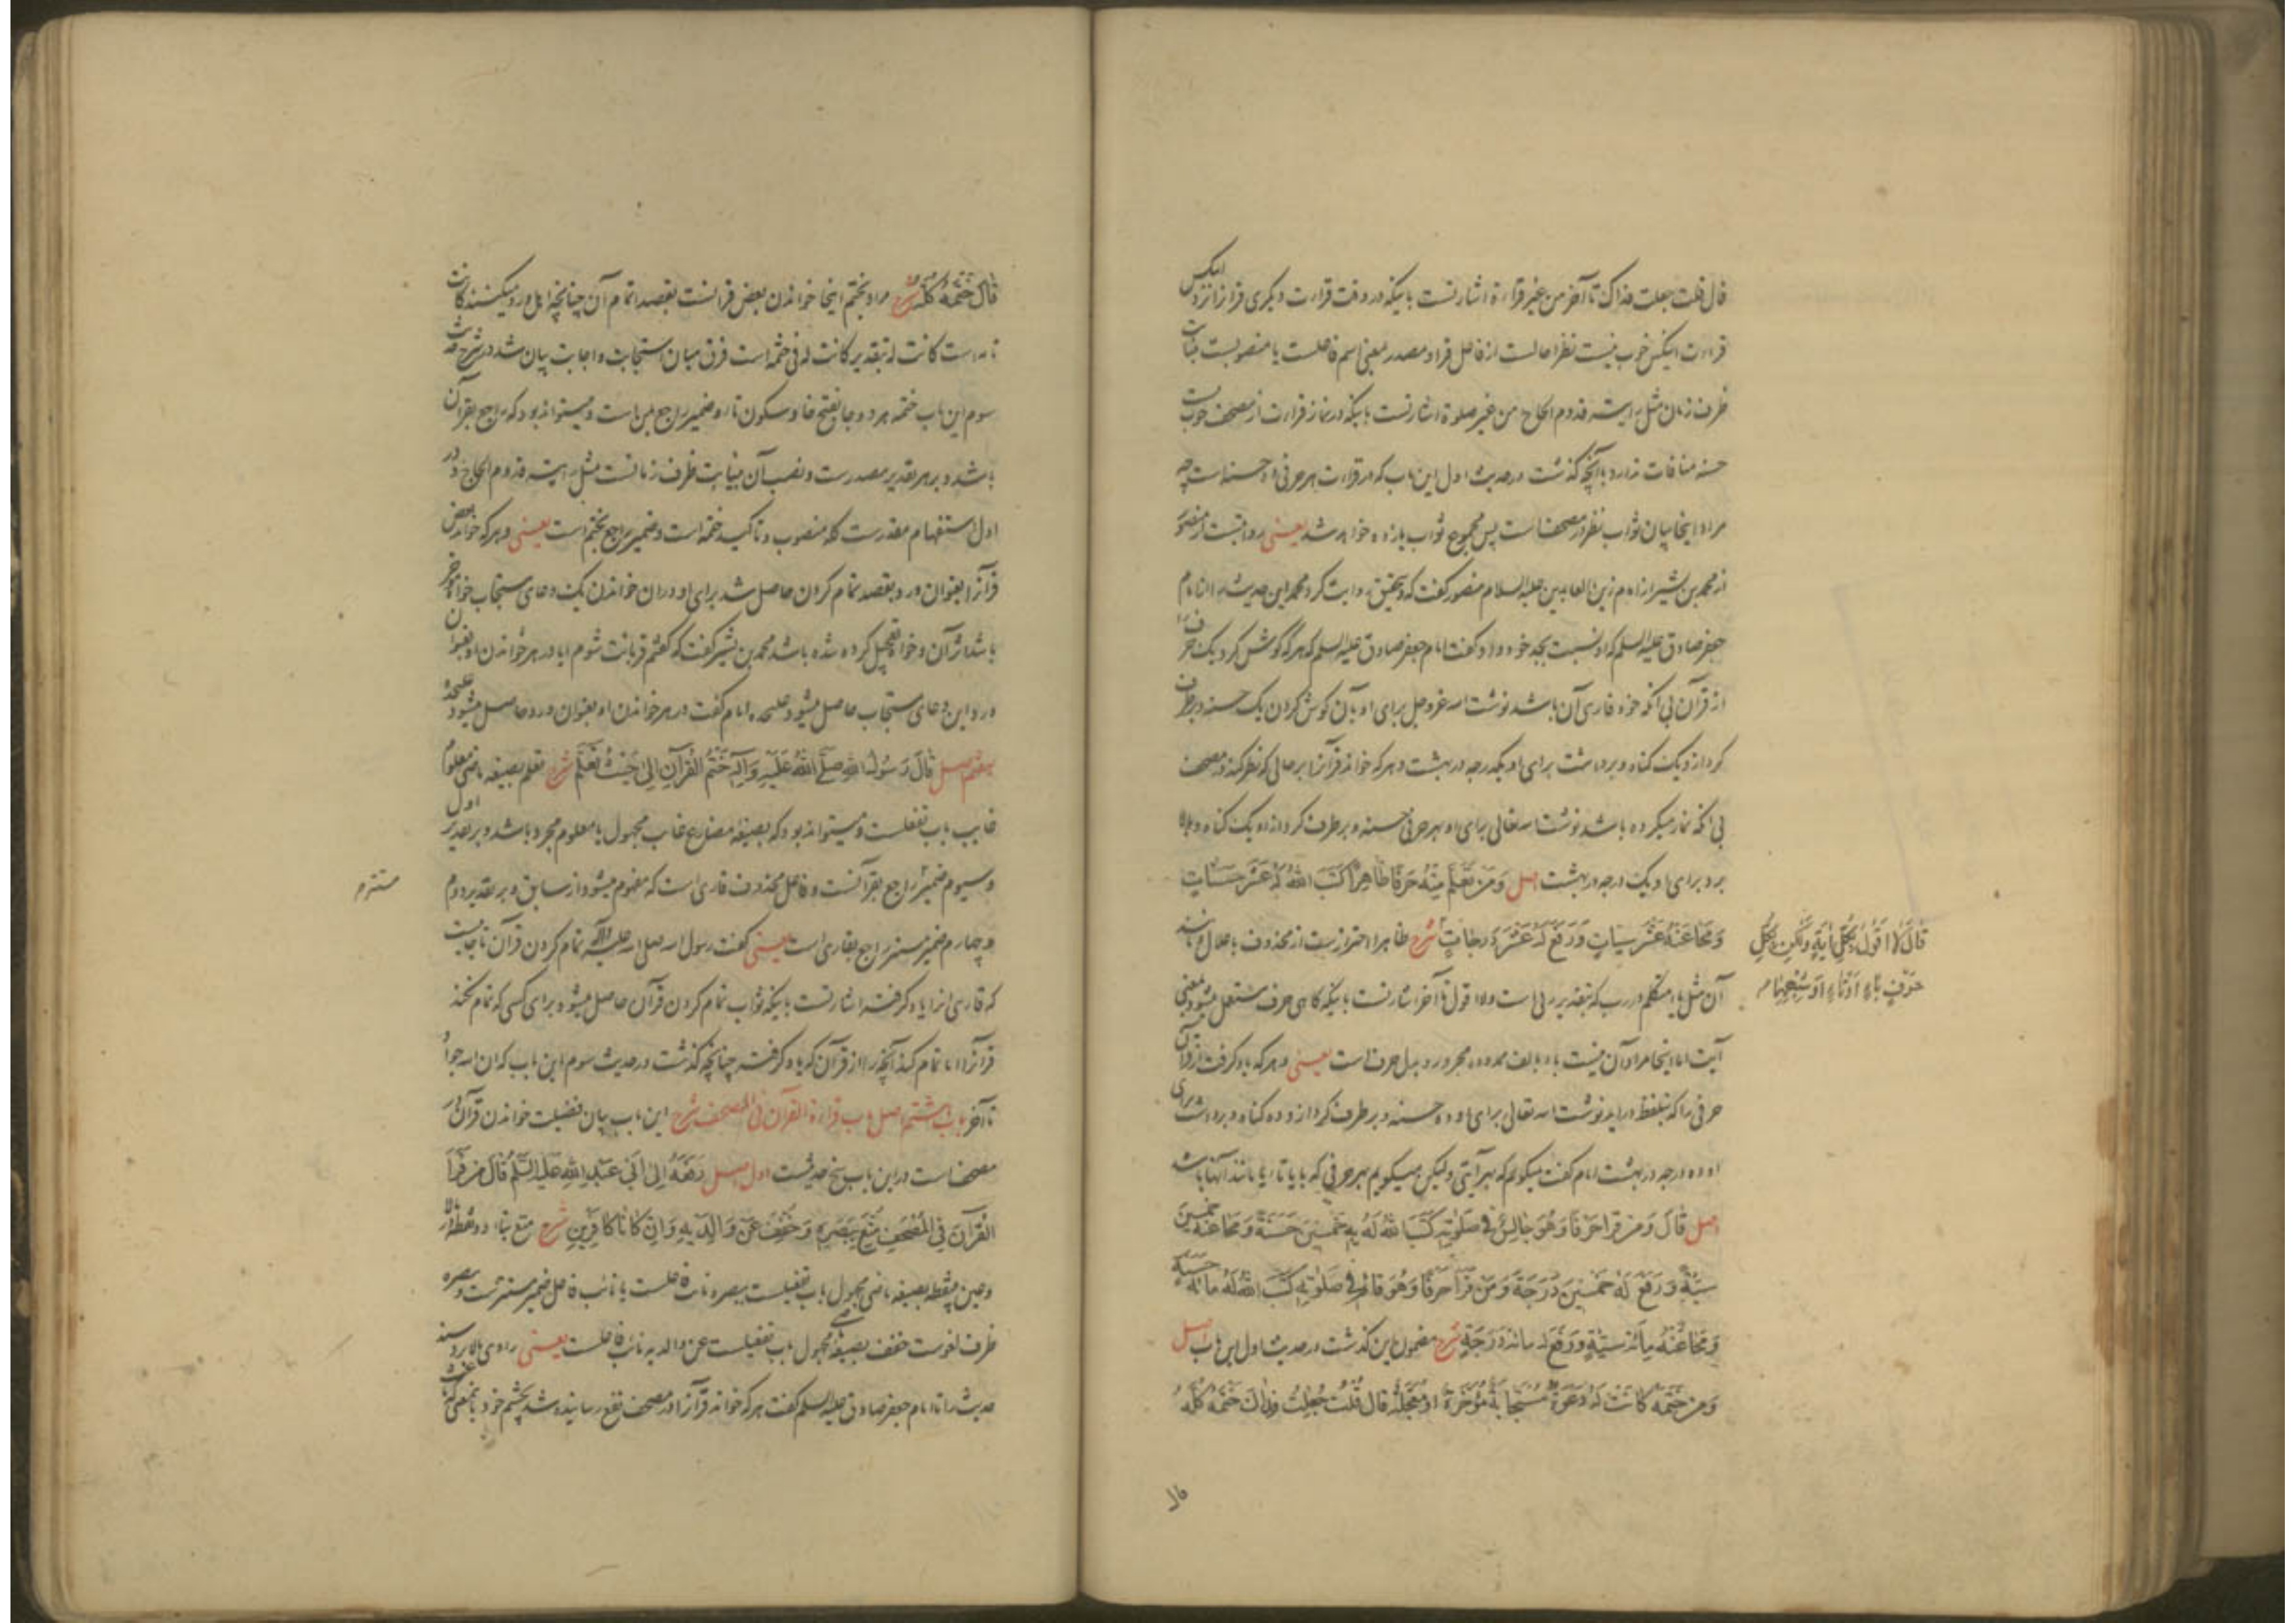 قال قلت جعلت فداک تا آخر من غیر قراءة اشارتست باینکه در وقت قراءت دیگری قرآنرا نزد اینکس
قراءت اینکس خوب نیست نظرا حالست از فاعل قرا و مصدر بمعنی اسم فاعلست یا منصوبست بنیابت
ظرف زمان مثل رایته قدوم الحاج من غیر صلوة اشارتست باینکه در نماز قراءت از مصحف خوب نیست
حسنه منافات ندارد باآنچه گذشت در حدیث اول این باب که در قراءت هر حرفی ده حسنه است چه
مراد اینجا بیان ثواب نظر در مصحف است پس مجموع ثواب یازده خواهد شد یعنی روایتست از منصور
از محمد بن بشیر از امام زین العابدین علیه السلام منصور گفت که و بتحقیق روایت کرد محمد این حدیث را از امام
جعفر صادق علیه السلم که او نسبت بجد خود داد گفت امام جعفر صادق علیه السلم که هر که گوش کرد یک حرف را
از قرآن بی آنکه خود قاری آن باشد نوشت اسه عزوجل برای او بآن گوش کردن یک حسنه و بر طرف
کرد از او یک گناه و برداشت برای او یکدرجه در بهشت و هر که خواند قرآنرا بر حالی که نظر کند در مصحف
بی آنکه نماز میکرده باشد نوشت اسه تعالی برای او بهر حرفی حسنه و بر طرف کرد از او یک گناه و بالا
برد برای او یک درجه در بهشت اصل وَمَن تَعَلَّمَ مِنْهُ حَرفًا ظاهِرًا کَتَبَ اللهُ لَهُ عَشَرَ حَسَناتٍ
وَمَحَا عَنْهُ عَشَرَ سَیّئاتٍ وَرَفَعَ لَهُ عَشَرَةَ دَرَجاتٍ شرح ظاهرا احترازست از محذوف باعلال و مانند
قالَ لا اَقُولُ بِکُلِّ آیَةٍ وَلکِن بِکُلِّ
حَرْفٍ باءٍ اَوْ تاءٍ اَوْ شِبْهِهِما م
آن مثل یاء متکلم در رب که بتقدیر ربی است و لا اقول تا آخر اشارتست باینکه گاهی حرف مستعمل میشود بمعنی
آیت اما اینجا مراد آن نیست باء بالف ممدوده مجرور و بدل حرف است یعنی و هر که یاد گرفت از قرآن
حرفی را که بتلفظ در آید نوشت اسه تعالی برای او ده حسنه و بر طرف کرد از او ده گناه و برداشت برای
او ده درجه در بهشت امام گفت میگویم که بهر آیتی ولیکن میگویم بهر حرفی که با یا تا یا مانند آنها باشد
اصل قالَ وَمَن قَرَأ حَرفًا وَهُوَ جالِسٌ فی صَلوتِهِ کَتَبَ اللهُ لَهُ بِهِ خَمسینَ حَسَنَةً وَمَحَا عَنْهُ خَمسینَ
سَیّئةً وَرَفَعَ لَهُ خَمسینَ دَرَجَةً وَمَن قَرَأ حَرفًا وَهُوَ قائمٌ فی صَلوتِهِ کَتَبَ اللهُ لَهُ مائة حَسَنة
وَمَحا عَنْهُ مِائةَ سَیّئةٍ وَرَفَعَ لَهُ مائة دَرَجَةٍ شرح مضمون این گذشت در حدیث اول این باب اصل
وَمَن خَتَمَهُ کانَتْ لَهُ دَعْوَةٌ مُستَجابَةٌ مُؤَخَّرَةً اَو مُعَجَّلَةً قالَ قُلتُ جُعِلتُ فِداکَ خَتَمَهُ کُلَّهُ
قالَ خَتَمَهُ کُلَّهُ شرح مراد بختم اینجا خواندن بعض قرآنست بقصد اتمام آن چنانچه اهل ورد میکنند کانت
تامه است کانت له بتقدیر کانت له فی ختمه است فرق میان استجابت و اجابت بیان شد در شرح حدیث
سوم این باب ختمه هر دو جا بفتح خا و سکون تا و ضمیر راجع بمن است و میتواند بود که راجع بقرآن
باشد و بر هر تقدیر مصدرست و نصب آن بنیابت ظرف زمانست مثل رایته قدوم الحاج و در
اول استفهام مقدرست کله منصوب و تاکید ختمه است و ضمیر راجع بختم است یعنی و هر که خواند بعض
قرآنرا بعنوان ورد و بقصد تمام کردن حاصل شد برای او در آن خواندن یک دعای مستجاب خواه مؤخر
باشد اثر آن و خواه تعجیل کرده شده باشد محمد بن بشیر گفت که گفتم قربانت شوم ایا در هر خواندن او بعنوان
ورد این دعای مستجاب حاصل میشود علیحده امام گفت در هر خواندن او بعنوان ورد حاصل میشود علیحده
هفتم اصل قالَ رَسُولُ اللهِ صلَّی اللهُ عَلَیْهِ وَآلِهِ خَتْمُ القُرآنِ اِلی حَیْثُ تَعَلَّمَ شرح تعلم بصیغه ماضی معلوم
غایب باب تفعلست و میتواند بود که بصیغه مضارع غایب مجهول یا معلوم مجرد باشد و بر تقدیر اول
و سیوم ضمیر راجع بقرآنست و فاعل محذوف قاری است که مفهوم میشود از سابق و بر تقدیر دوم
مستتر م
و چهارم ضمیر مستتر راجع بقاری است یعنی گفت رسول اسه صلی اسه علیه وآله تمام کردن قرآن تا جاییست
که قاری آنرا یاد گرفته اشارتست باینکه ثواب تمام کردن قرآن حاصل میشود برای کسی که تمام نکند
قرآنرا اما تمام کند آنچه را از قرآن که یاد گرفته چنانچه گذشت در حدیث سوم این باب که ان اسه جواد
تا آخر باب هشتم اصل باب قراءة القرآن فی المصحف شرح این باب بیان فضیلت خواندن قرآن در
مصحف است در این باب پنج حدیثست اول اصل رَفَعَهُ اِلی اَبی عَبْدِ اللهِ عَلَیهِ السَّلم قالَ مَن قَرَأَ
القُرآنَ فِی المُصْحَفِ مُتِّعَ بِبَصَرِهِ وَخُفِّفَ عَنْ وَالِدَیْهِ وَاِنْ کانا کافِرَیْنِ شرح متع بتاء دو نقطه در بالا
و عین بی‌نقطه بصیغه ماضی مجهول باب تفعیلست ببصره نائب فاعلست یا نائب فاعل ضمیر مستترست و ببصره
ظرف لغوست خفف بصیغه ماضی مجهول باب تفعیلست عن والدیه نائب فاعلست یعنی راوی بالا برد سند
حدیث را تا امام جعفر صادق علیه السلم گفت هر که خواند قرآنرا در مصحف نفع رسانیده شد بچشم خود باینمعنی که